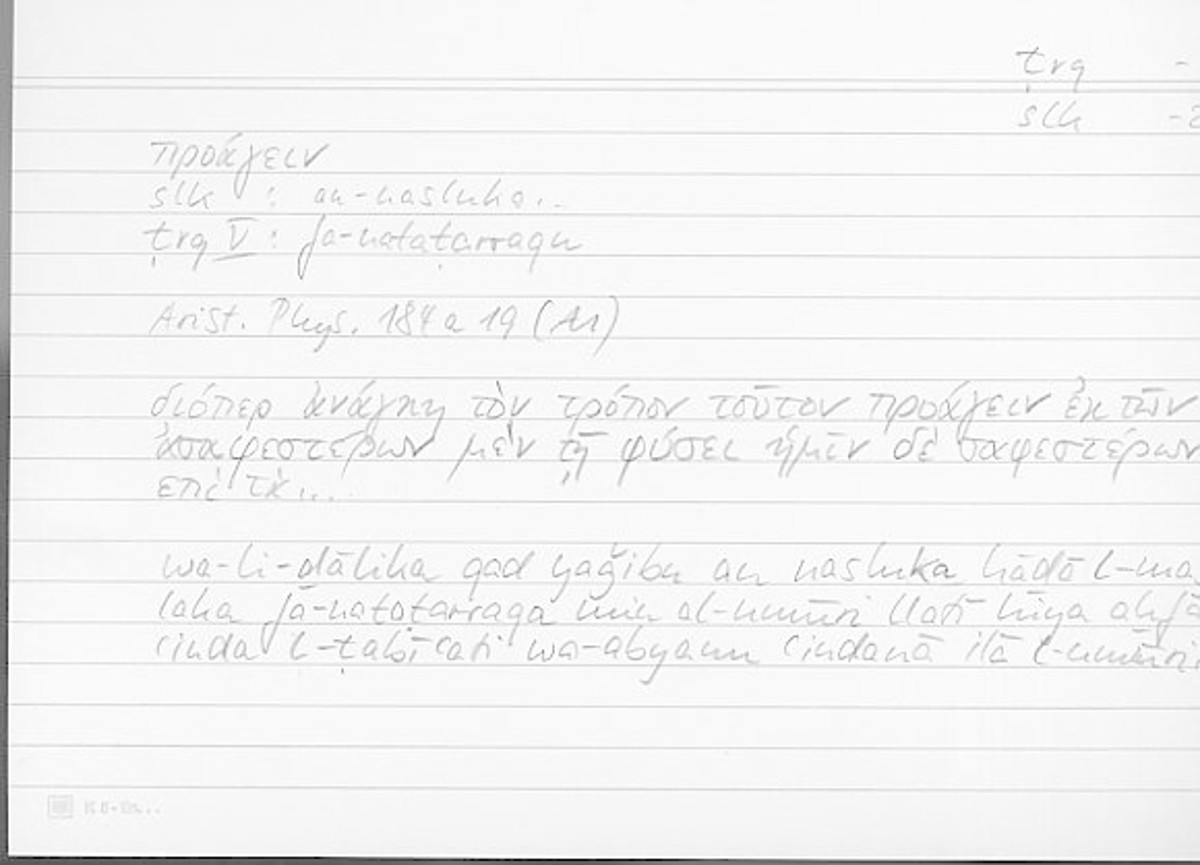 ṭrq -
slk -
προάγειν
slk : an-nasluka..
ṭrq V : fa-nataṭarraqu
Arist. Phys. 184a 19 (A1)
διόπερ ἀνάγκη τὸν τρόπον τοῦτον προάγειν ἐκ τῶν
ἀσαφεστέρων μὲν τῇ φύσει ἡμῖν δὲ σαφεστέρων
ἐπὶ τὰ...
wa-li-ḏālika qad yaǧibu an nasluka hāḏā l-ma
laka fa-nataṭarraqa min al-umūri llatī hiya aḫfā
ʿinda l-ṭabīʿati wa-abyanu ʿindanā ilā l-umūri